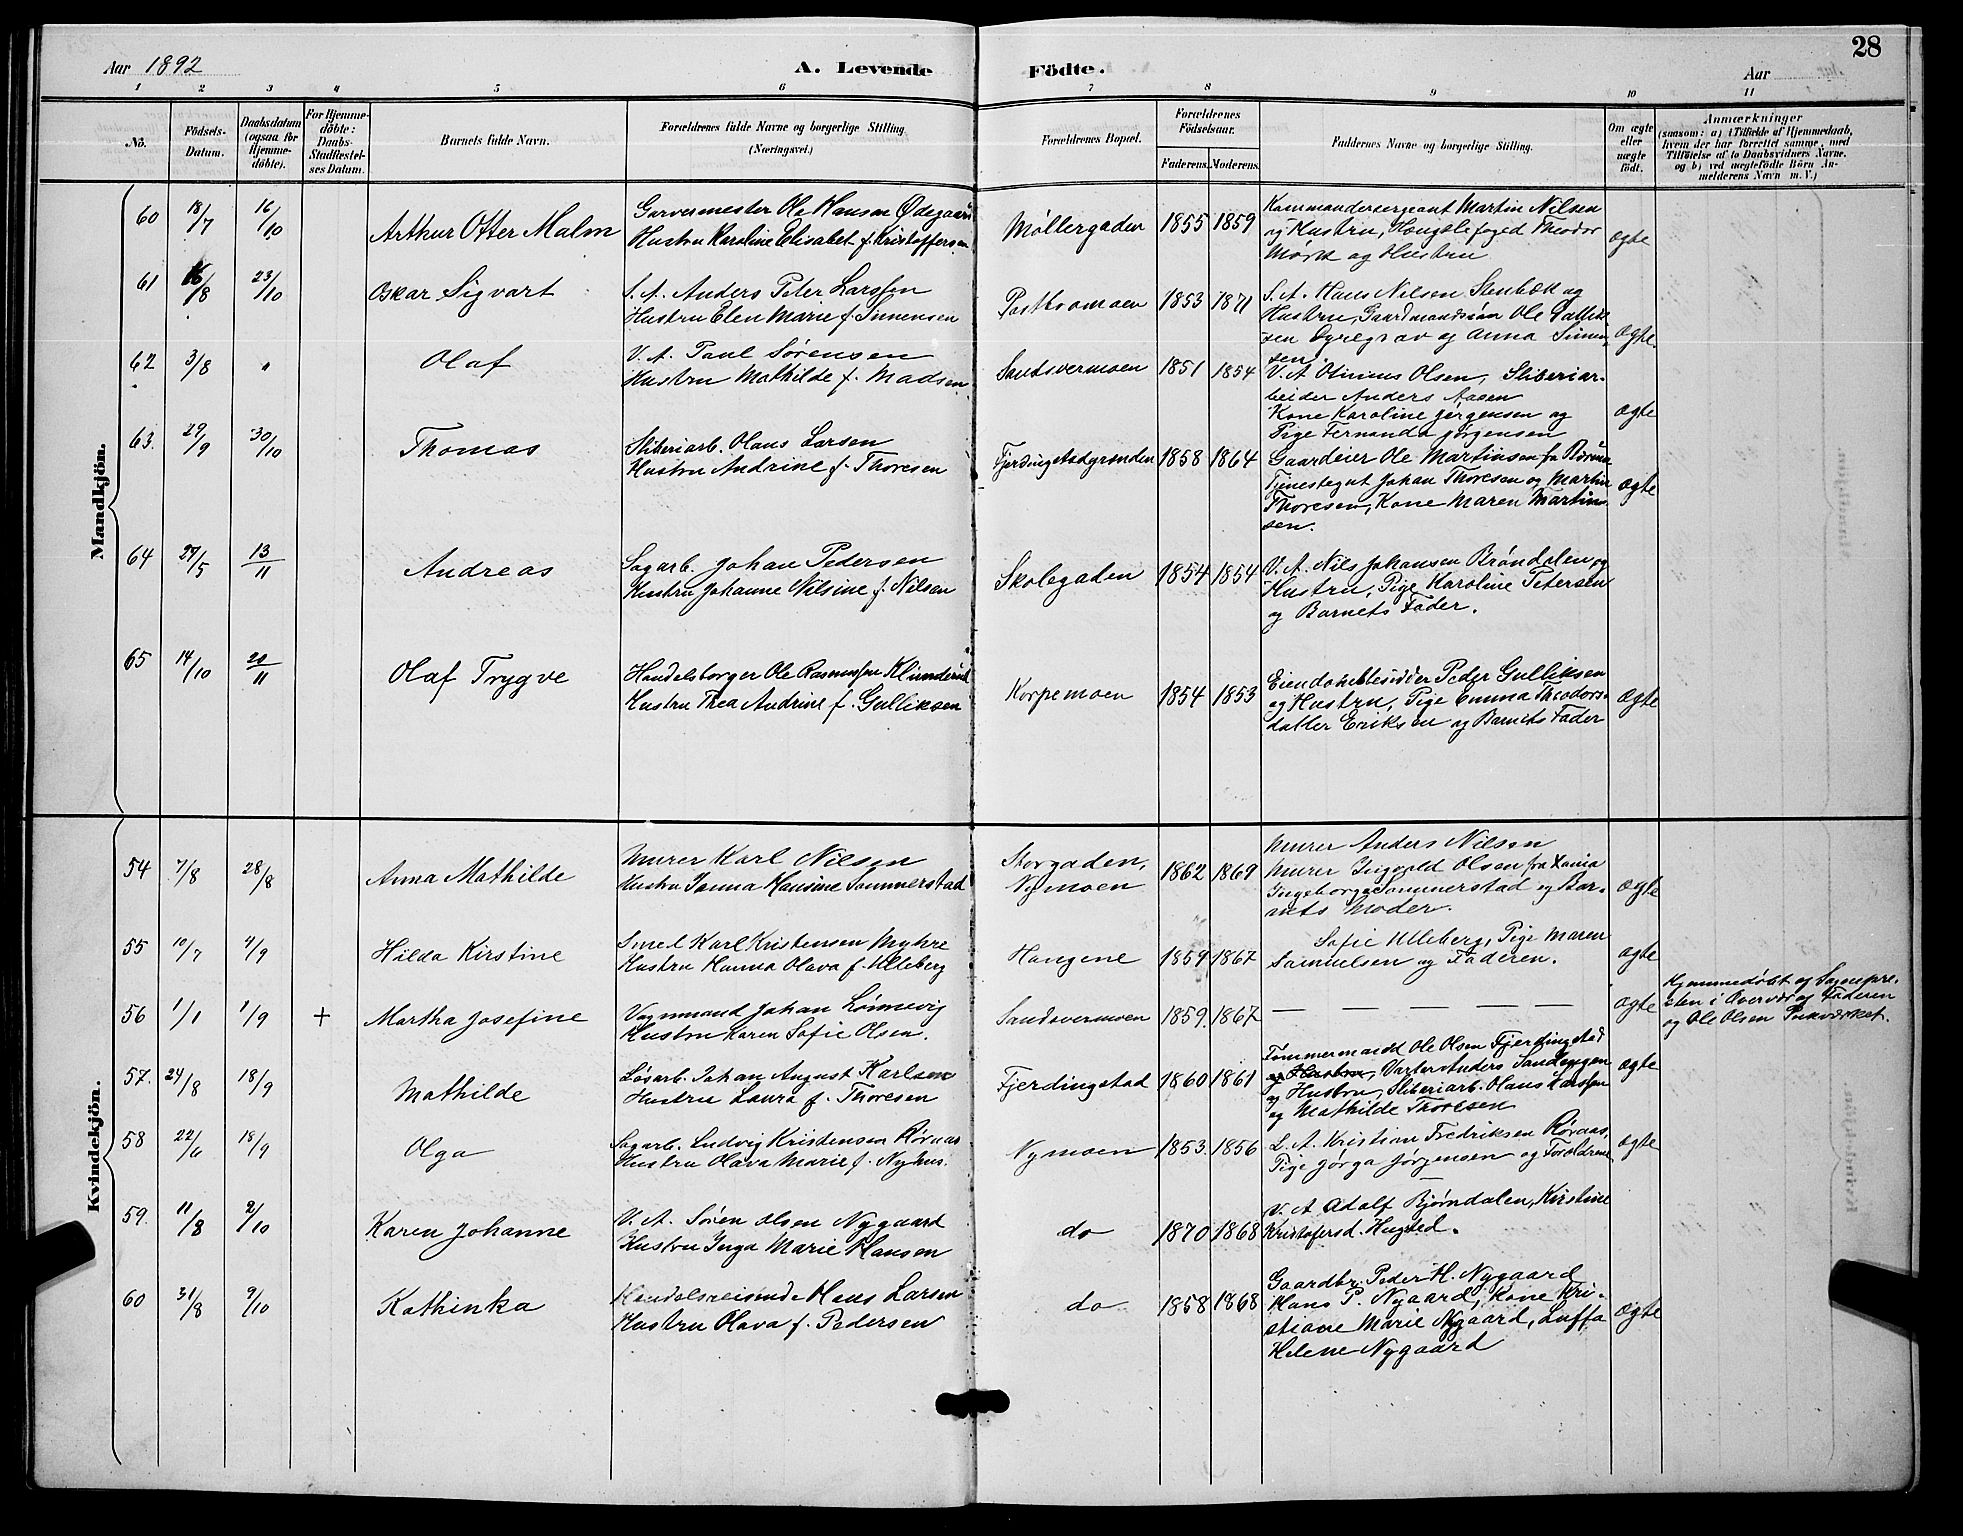 28
Aar 1892
A. Levende
Födte.
Aar
1 2 3 4 5 6 7 8 9 10 11
No.
Födsels-
Datum.
Daabsdatum
(ogsaa for
Hjemme-
döbte).
For Hjemme-
döbte:
Daabs-
Stadfæstel-
ses Datum.
Barnets fulde Navn.
Forældrenes fulde Navne og borgerlige Stilling
(Næringsvei.)
Forældrenes Bopæl.
Forældrenes
Födselsaar.
Faderens.
Moderens.
Faddernes Navne og borgerlige Stilling.
Om ægte
eller
uægte
födt.
Anmærkninger
(saasom: a) i Tilfælde af Hjemmedaab,
hvem der har forrettet samme, med
Tilföielse af to Daabsvidners Navne,
og b) ved uægtefödte Börn An-
melderens Navn m. V.)
Mandkjön.
60 18/7 16/10 Arthur Otter Malm
Garvermester Ole Hansen Ødegaard
Hustru Karoline Elisabet f. Kristoffersen
Møllergaden 1855 1859
Kommandersergeant Martin Nilsen
og Hustru, Fængselsfoged Theodor
Mørk og Hustru
ægte
61 16/8 23/10 Oskar Sigvart
S. A. Anders Peter Larsen
Hustru Elen Marie f. Simensen
1853 1871
S. A. Hans Nilsen Stenbæk og
Hustru, Gaardmandssøn Ole
sen Dyregrav og Anna Simen-
sen.
ægte.
62 3/8 " Olaf
V. A. Paul Sørensen
Hustru Mathilde f. Madsen
Sandsvermoen 1851 1854
V. A Olsen, Sliberiar-
beider Anders Aasen
Kone Karoline Jørgensen og
Pige Fernanda Jørgensen
ægte
63. 29/9 30/10 Thomas
Sliberiarb. Olaus Larsen
Hustru Andrine f. Thoresen
Fjerdingstadgrunden 1858 1864
Gaardeier Ole Martinsen fra
Tjenestegut Johan Thoresen og Martin
Thoresen, Kone Maren Martin-
sen.
ægte
64 29/5 13/11 Andreas
Sagarb. Johan Pedersen
Hustru Johanne Nilsine f. Nilsen
Skolegaden 1854 1854
V. A. Nils Johansen Brøndalen og
Hustru, Pige Karoline Petersen
og Barnets Fader.
65 14/10 20/11 Olaf Trygve
Handelsborger Ole Rasmussen Klunderud
Hustru Thea Andrine f. Gulliksen
Korpemoen 1854 1853
Eiendomsbesidder Peder Gulliksen
og Hustru, Pige Emma Theodors-
datter Eriksen og Barnets Fader
ægte
Kvindekjön.
54 7/8 28/8 Anna Mathilde
Murer Karl Nilsen
Hustru Hansine Sommerstad
Storgaden,
Nymoen
1862 1869
Murer Anders Nilsen
Murer Ingvald Olsen fra Xania
Ingeborg Sommerstad og Bar-
nets Moder.
ægte
55 10/7 4/9 Hilda Kirstine
Smed Karl Kristensen Myhre
Hustru Hanna Olava f. Ulleberg
Haugene 1859 1867
Sofie Ulleberg, Pige Maren
Samuelsen og Faderen.
ægte
56 1/1 1/9 + Martha Josefine
Vognmand Johan Lønnevig
Hustru Karen Sofie Olsen.
Sandsvermoen 1859. 1867
— — — — —
ægte
Hjemmedøbt og Sognepre-
sten i Overvær og Faderen
og Ole Olsen
57. 24/8 18/9 Mathilde
Løsarb. Johan August Karlsen
Hustru Laura f. Thoresen
Fjerdingstad 1860 1861
Tømmermand Ole Olsen Fjerdingstad
og Hustru, Anders Sandengen
og Hustru, Sliberiarb. Olaus Larsen
og Mathilde Thoresen
ægte
58 22/6 18/9 Olga
Sagarb. Ludvig Kristensen Røraas
Hustru Olava Marie f. Nyhus.
Nymoen 1853. 1856
L. A. Kristian Fredriksen Røraas,
Pige Jørga Jørgensen og Forældrene
ægte
59. 11/8 2/10 Karen Johanne
V. A. Søren Olsen Nygaard
Hustru Inga Marie Hansen
do 1870 1868
V. A Adolf Bjørndalen, Kirstine
Kristofersd. Hugsted.
60 31/8 9/10 Kathinka
Handelsreisende Hans Larsen
Hustru Olava f. Pedersen
do 1858 1868
Gaardbr. Peder H. Nygaard
Hans P. Nygaard, Kone Kri-
stiane Marie Nygaard,
Helene Nygaard
ægte